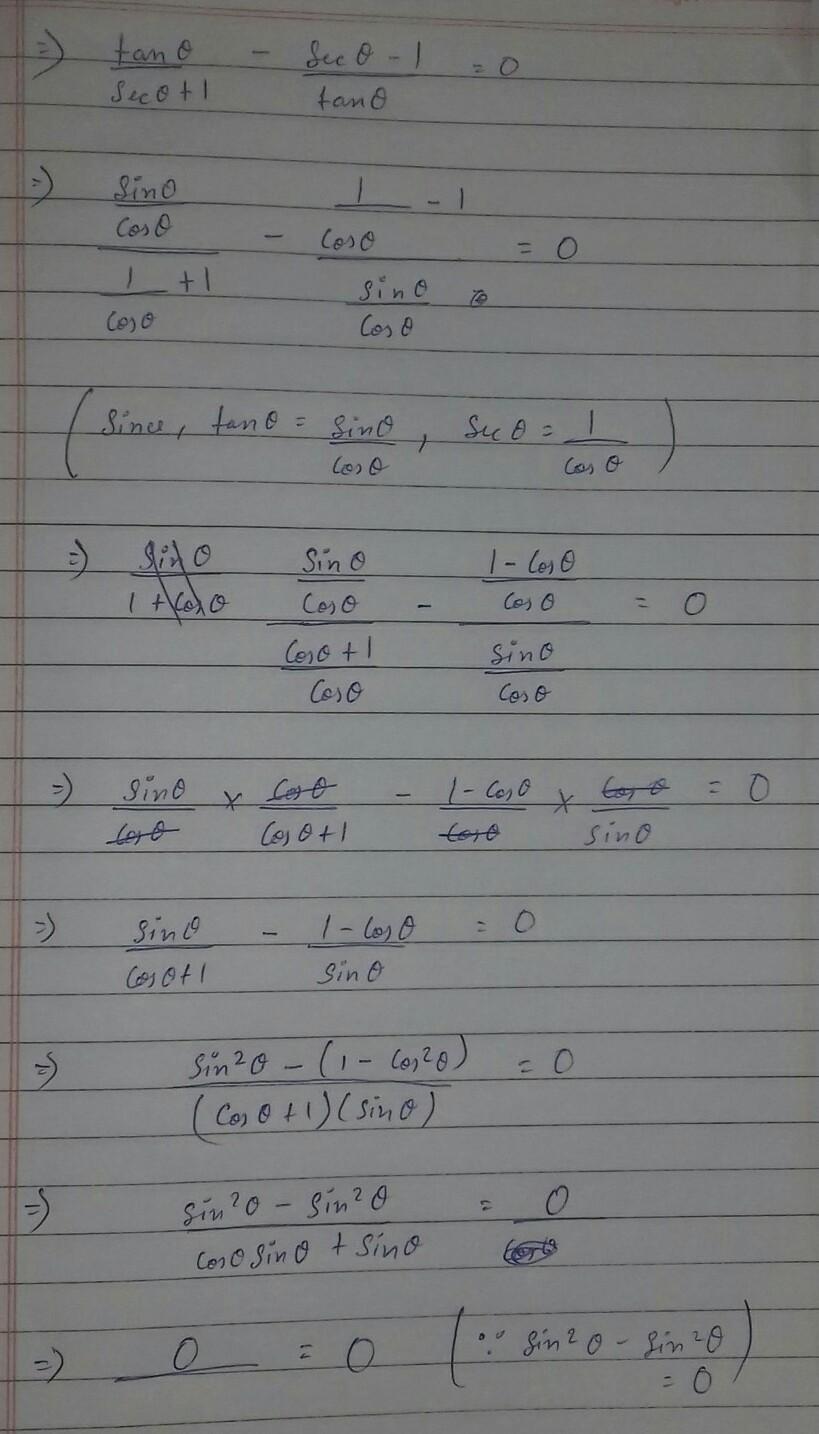 ⇒ tanθ/secθ+1 - secθ-1/tanθ = 0
⇒ sinθ/cosθ / 1/cosθ +1 - 1/cosθ -1 / sinθ/cosθ = 0
(Since, tanθ = sinθ/cosθ, secθ = 1/cosθ)
⇒ sinθ/1+cosθ sinθ/cosθ / cosθ+1/cosθ - 1-cosθ/cosθ / sinθ/cosθ = 0
⇒ sinθ/cosθ × cosθ/cosθ+1 - 1-cosθ/cosθ × cosθ/sinθ = 0
⇒ sinθ/cosθ+1 - 1-cosθ/sinθ = 0
⇒ sin²θ-(1-cos²θ)/(cosθ+1)(sinθ) = 0
⇒ sin²θ-sin²θ/cosθ sinθ + sinθ = 0
⇒ 0 = 0 (∵ sin²θ - sin²θ = 0)